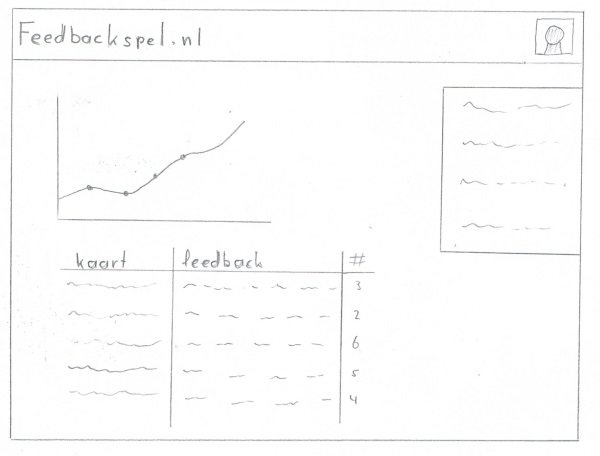 Feedbackspel.nl
kaart feedback #
3
2
6
5
4